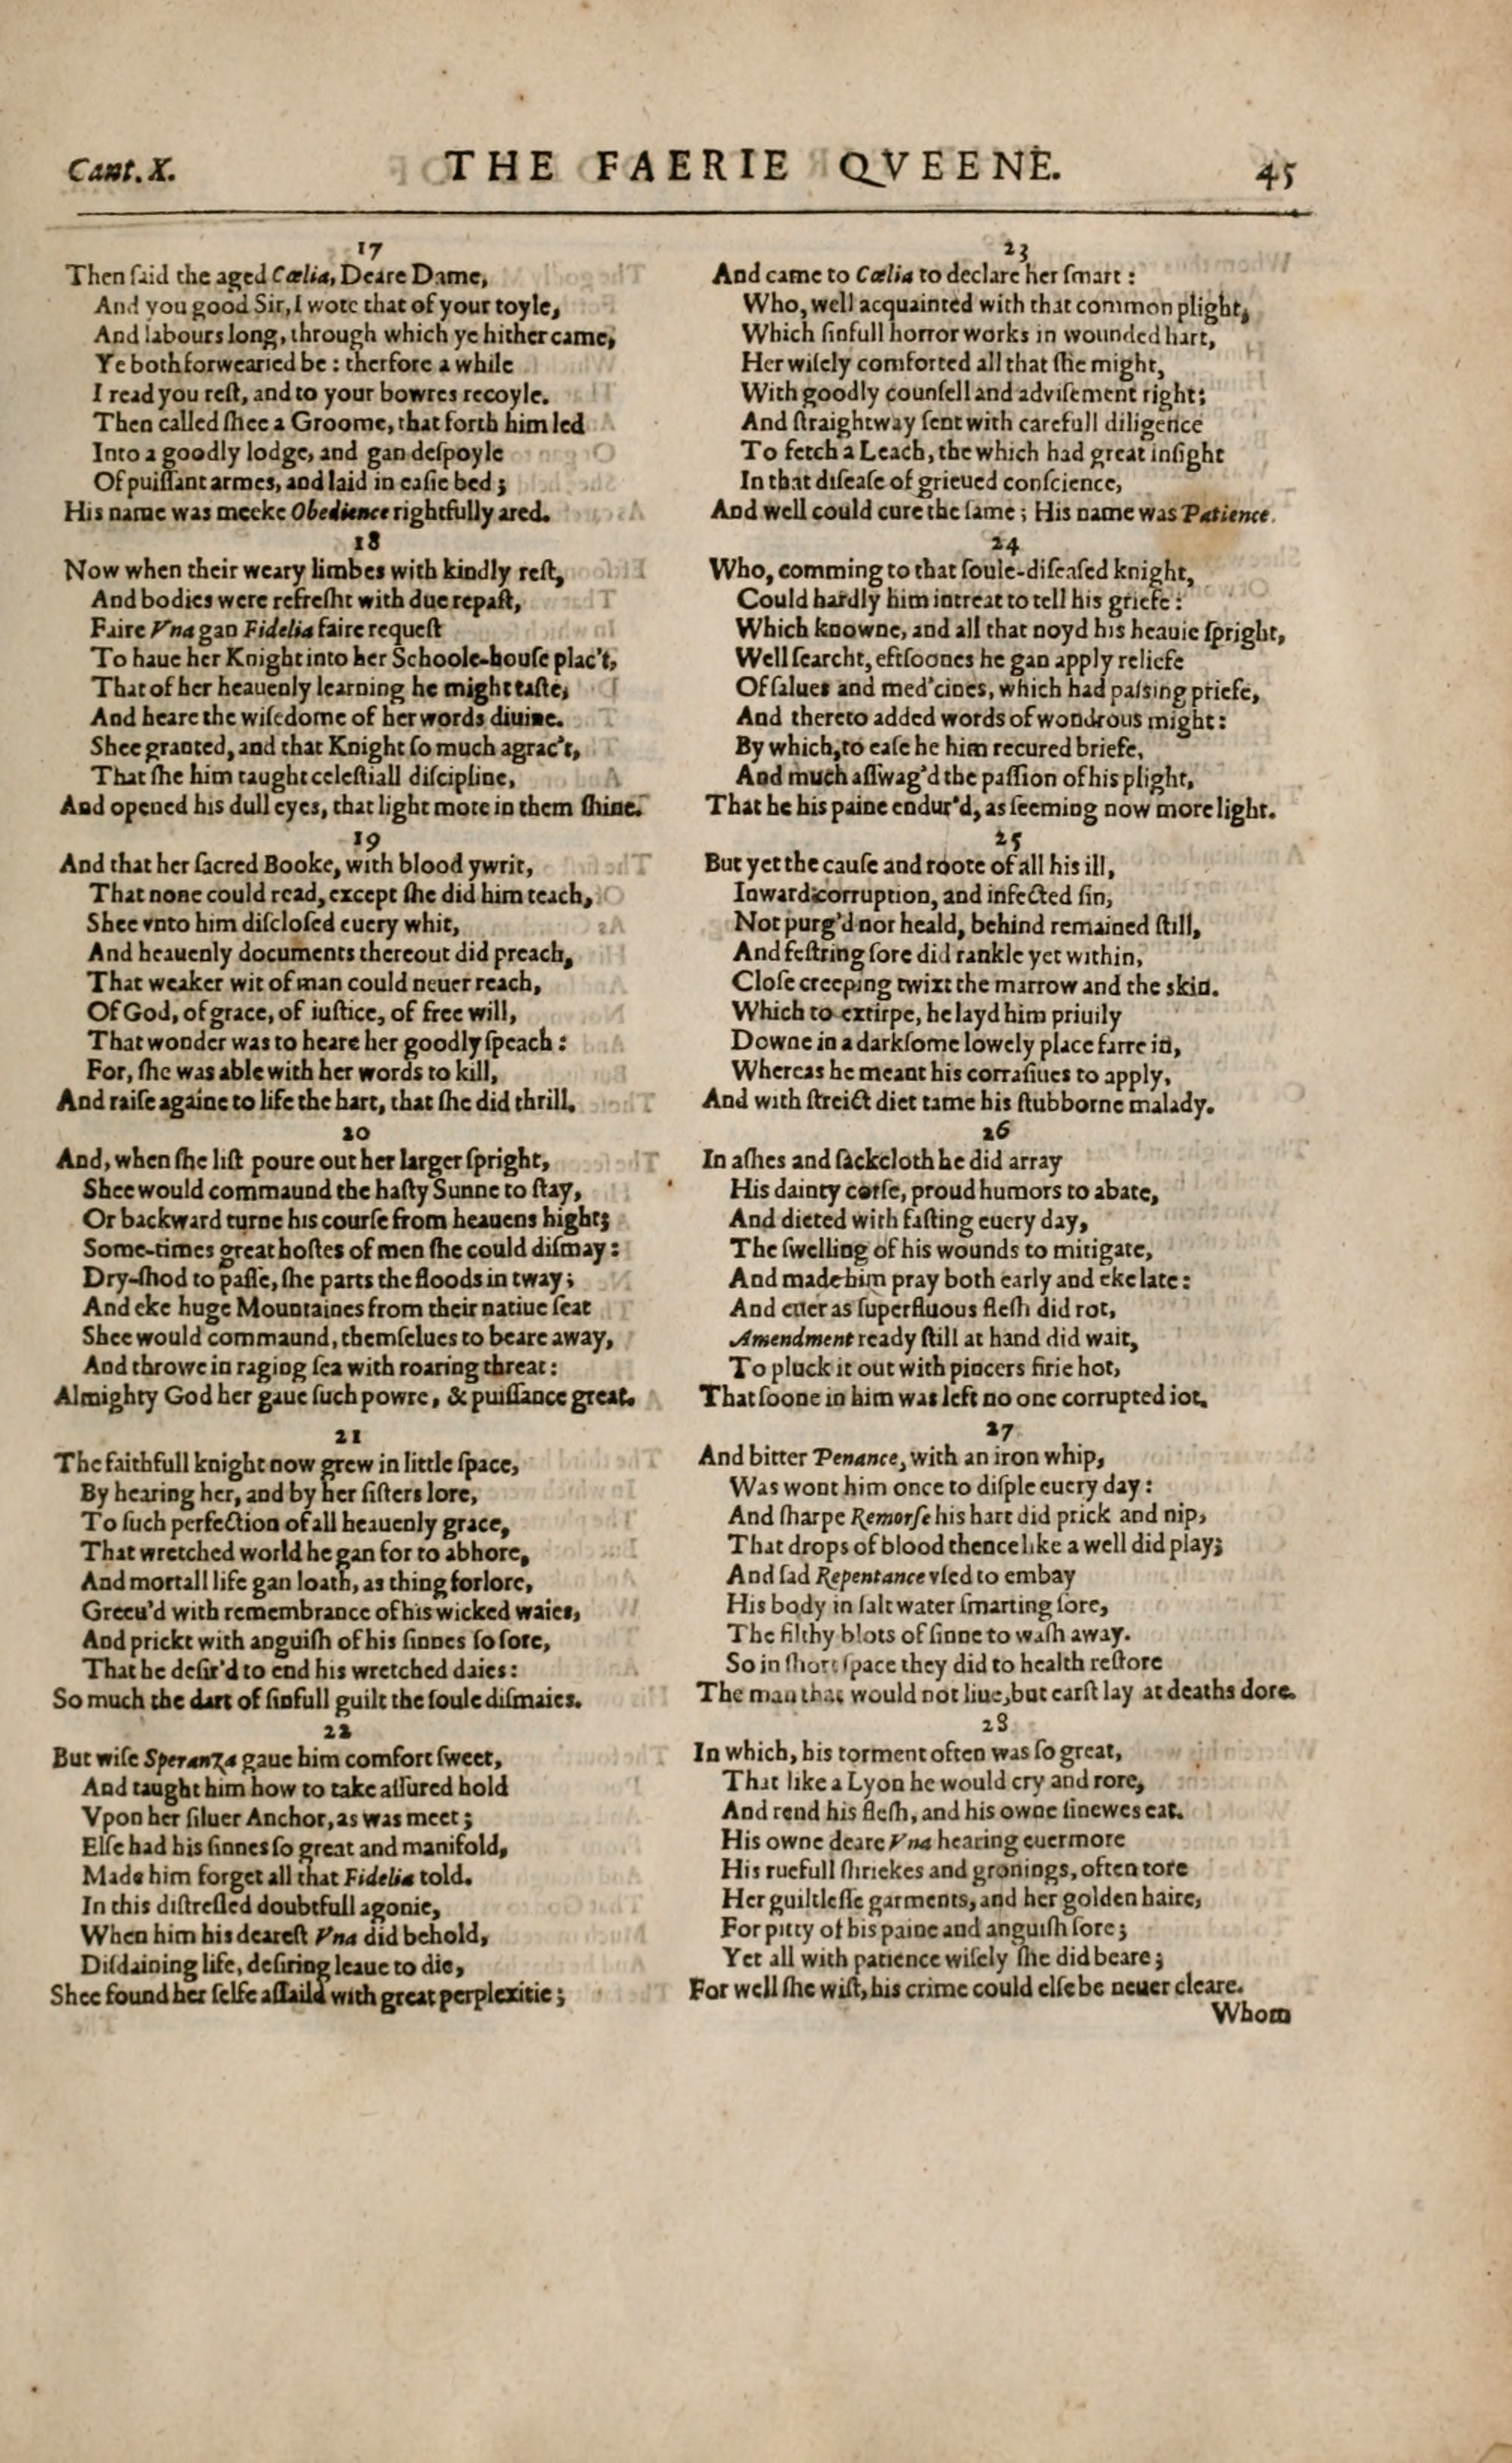 Cant. X.
THE FAERIE QVEENE.
45
17
Then ſaid the aged Cœlia, Deare Dame,
And you good Sir, I wote that of your toyle,
And labours long, through which ye hither came,
Ye both forwearied be : therfore a while
I read you reſt, and to your bowres recoyle.
Then called ſhee a Groome, that forth him led
Into a goodly lodge, and gan deſpoyle
Of puiſſant armes, and laid in eaſie bed ;
His name was meeke Obedience rightfully ared.
18
Now when their weary limbes with kindly reſt,
And bodies were refreſht with due repaſt,
Faire Vna gan Fidelia faire requeſt
To haue her Knight into her Schoole-houſe plac't,
That of her heauenly learning he might taſte,
And heare the wiſedome of her words diuine.
Shee granted, and that Knight ſo much agrac't,
That ſhe him taught celeſtiall diſcipline,
And opened his dull eyes, that light mote in them ſhine.
19
And that her ſacred Booke, with blood ywrit,
That none could read, except ſhe did him teach,
Shee vnto him diſcloſed euery whit,
And heauenly documents thereout did preach,
That weaker wit of man could neuer reach,
Of God, of grace, of iuſtice, of free will,
That wonder was to heare her goodly ſpeach :
For, ſhe was able with her words to kill,
And raiſe againe to life the hart, that ſhe did thrill.
20
And, when ſhe liſt poure out her larger ſpright,
Shee would commaund the haſty Sunne to ſtay,
Or backward turne his courſe from heauens hight;
Some-times great hoſtes of men ſhe could diſmay :
Dry-ſhod to paſſe, ſhe parts the floods in tway ;
And eke huge Mountaines from their natiue ſeat
Shee would commaund, themſelues to beare away,
And throwe in raging ſea with roaring threat :
Almighty God her gaue ſuch powre, & puiſſance great.
21
The faithfull knight now grew in little ſpace,
By hearing her, and by her ſiſters lore,
To ſuch perfection of all heauenly grace,
That wretched world he gan for to abhore,
And mortall life gan loath, as thing forlore,
Greeu'd with remembrance of his wicked waies,
And prickt with anguiſh of his ſinnes ſo ſore,
That he deſir'd to end his wretched daies :
So much the dart of ſinfull guilt the ſoule diſmaies.
22
But wiſe Speranza gaue him comfort ſweet,
And taught him how to take aſſured hold
Vpon her ſiluer Anchor, as was meet ;
Elſe had his ſinnes ſo great and manifold,
Made him forget all that Fidelia told.
In this diſtreſſed doubtfull agonie,
When him his deareſt Vna did behold,
Diſdaining life, deſiring leaue to die,
Shee found her ſelfe aſſaild with great perplexitie ;
23
And came to Cœlia to declare her ſmart :
Who, well acquainted with that common plight,
Which ſinfull horror works in wounded hart,
Her wiſely comforted all that ſhe might,
With goodly counſell and adviſement right;
And ſtraightway ſent with carefull diligence
To fetch a Leach, the which had great inſight
In that diſeaſe of grieued conſcience,
And well could cure the ſame ; His name was Patience.
24
Who, comming to that ſoule-diſeaſed knight,
Could hardly him intreat to tell his griefe :
Which knowne, and all that noyd his heauie ſpright,
Well ſearcht, eftſoones he gan apply reliefe
Of ſalues and med'cines, which had paſsing priefe,
And thereto added words of wondrous might :
By which, to eaſe he him recured briefe,
And much aſſwag'd the paſſion of his plight,
That he his paine endur'd, as ſeeming now more light.
25
But yet the cauſe and roote of all his ill,
Inward corruption, and infected ſin,
Not purg'd nor heald, behind remained ſtill,
And feſtring ſore did rankle yet within,
Cloſe creeping twixt the marrow and the skin.
Which to extirpe, he layd him priuily
Downe in a darkſome lowely place farre in,
Whereas he meant his corraſiues to apply,
And with ſtreict diet tame his ſtubborne malady.
26
In aſhes and ſackcloth he did array
His dainty corſe, proud humors to abate,
And dieted with faſting euery day,
The ſwelling of his wounds to mitigate,
And made him pray both early and eke late :
And euer as ſuperfluous fleſh did rot,
Amendment ready ſtill at hand did wait,
To pluck it out with pincers firie hot,
That ſoone in him was left no one corrupted iot.
27
And bitter Penance, with an iron whip,
Was wont him once to diſple euery day :
And ſharpe Remorſe his hart did prick and nip,
That drops of blood thence like a well did play;
And ſad Repentance vſed to embay
His body in ſalt water ſmarting ſore,
The filthy blots of ſinne to waſh away.
So in ſhort ſpace they did to health reſtore
The man that would not liue, but earſt lay at deaths dore.
28
In which, his torment often was ſo great,
That like a Lyon he would cry and rore,
And rend his fleſh, and his owne ſinewes eat.
His owne deare Vna hearing euermore
His ruefull ſhriekes and gronings, often tore
Her guiltleſſe garments, and her golden haire,
For pitty of his paine and anguiſh ſore ;
Yet all with patience wiſely ſhe did beare ;
For well ſhe wiſt, his crime could elſe be neuer cleare.
Whom